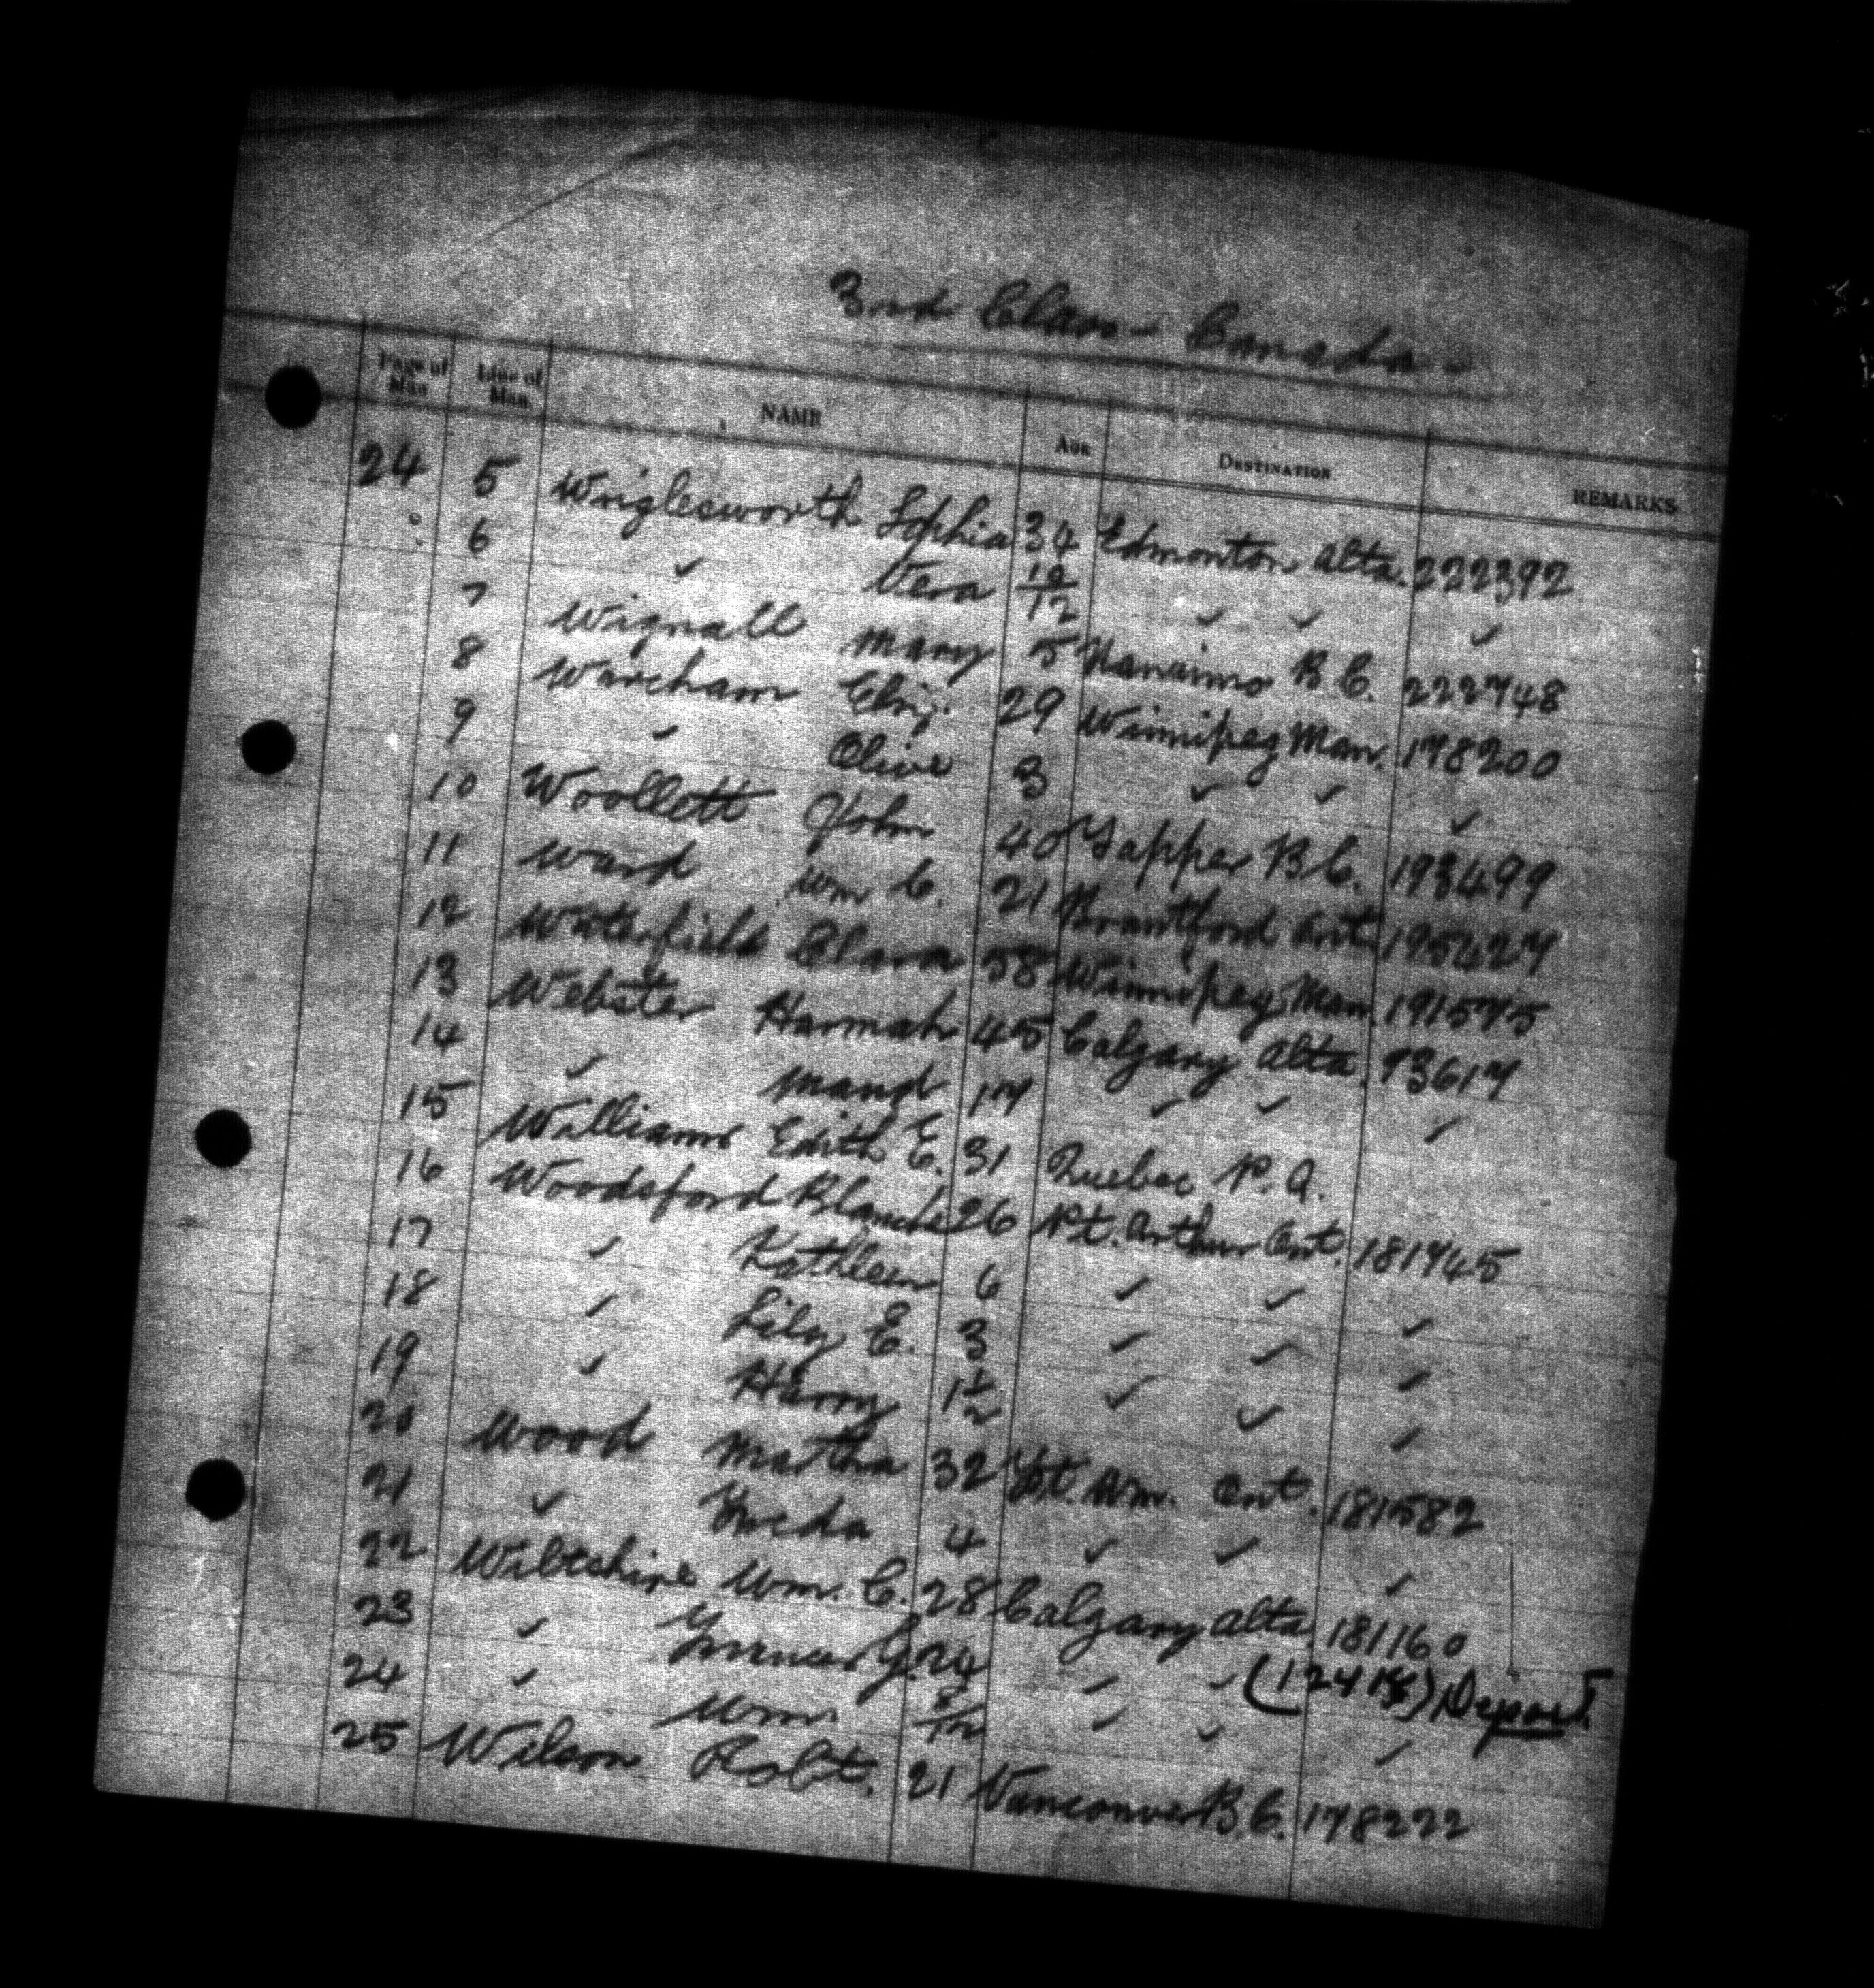 3rd Class - Canada -
Page of Man Line of Man. NAME AGE DESTINATION REMARKS
24 5 Wriglesworth Sophia 34 Edmonton Alta. 222392
6 ✓ Vera 10/12 ✓ ✓ ✓
7 Wignall Mary 5 Nanaimo B.C. 222748
8 Wareham Eliz. 29 Winnipeg Man. 178200
9 ✓ Olive 3 ✓ ✓ ✓
10 Woollett John 40 Tapper B.C. 193499
11 Ward Wm C. 21 Brantford Ont. 195427
12 Waterfield Clara 58 Winnipeg Man. 191575
13 Webster Hannah 45 Calgary Alta. 73617
14 ✓ Maud 17 ✓ ✓ ✓
15 Williams Edith E. 31 Quebec P.Q.
16 Woodsford Blanche 26 Pt. Arthur Ont. 181745
17 ✓ Kathleen 6 ✓ ✓ ✓
18 ✓ Lily E. 3 ✓ ✓ ✓
19 ✓ Harry 1 1/2 ✓ ✓ ✓
20 Wood Martha 32 Ft. Wm. Ont. 181582
21 ✓ Freda 4 ✓ ✓ ✓
22 Wiltshire Wm. C. 28 Calgary Alta. 181160
23 ✓ G. 24 ✓ ✓ Deport.
24 ✓ Wm. 8/12 ✓ ✓ ✓
25 Wilson Robt. 21 Vancouver B.C. 178222